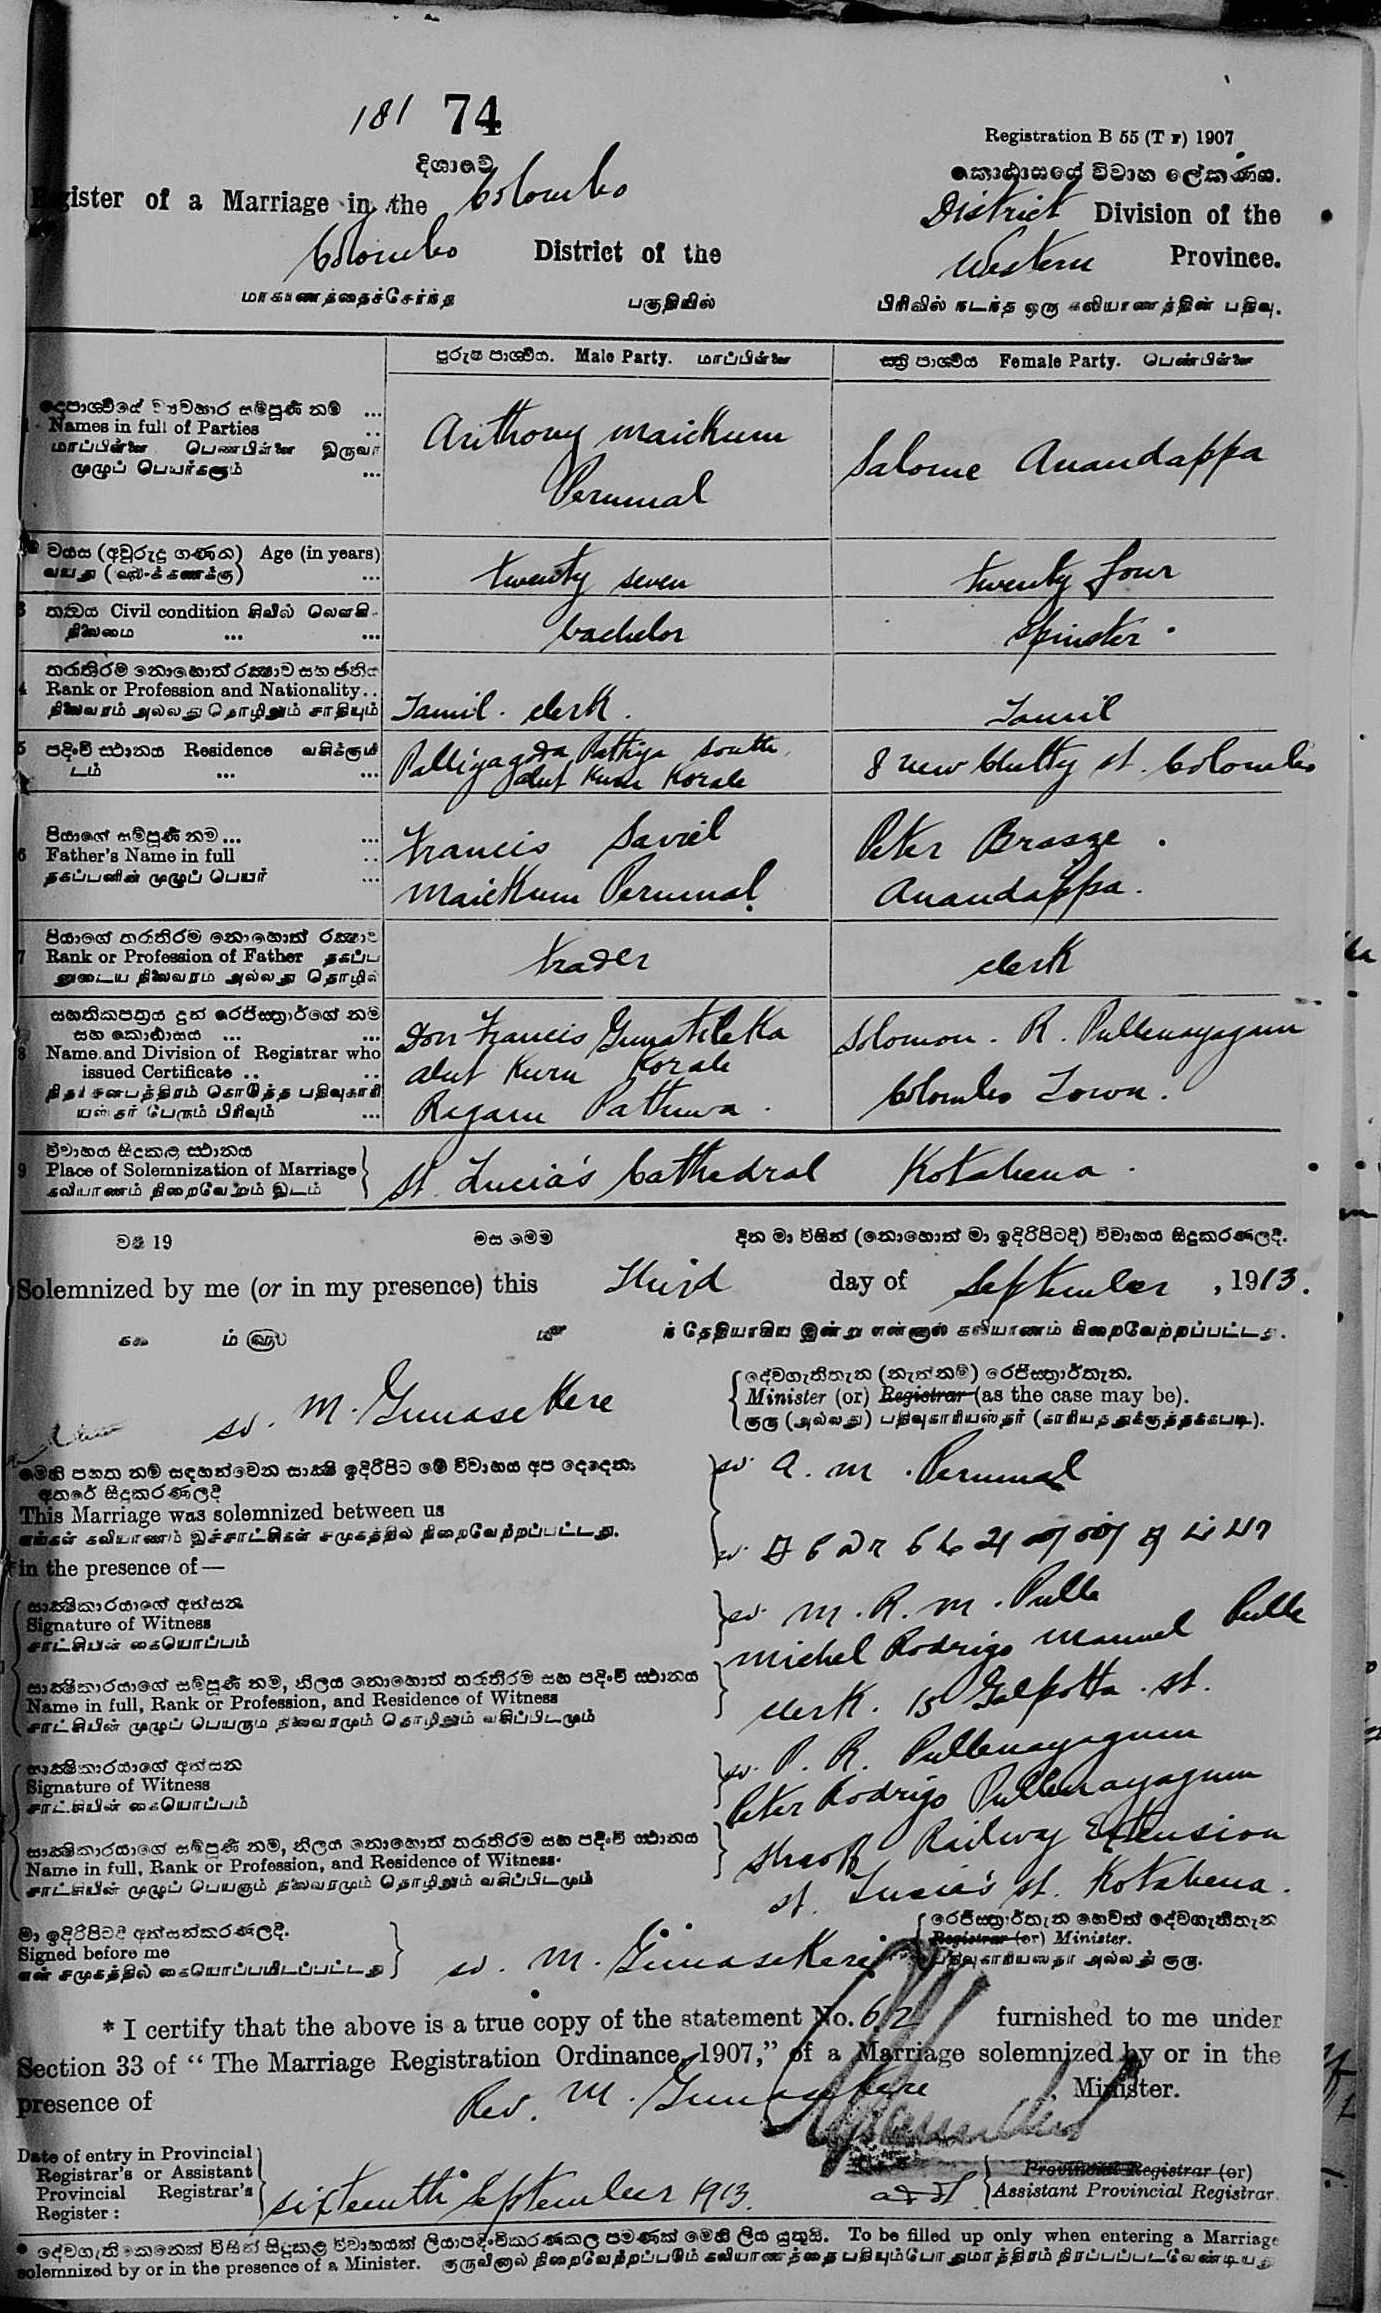 181 74
Registration B 55 (T F) 1907
දිශාවේ
කොඨාසයේ විවාහ ලේකණය.
Register of a Marriage in the Colombo District Division of the
Colombo District of the Western Province.
மாகாணத்தைச்சேர்ந்த பகுதியில் பிரிவில் நடந்த ஒரு கலியாணத்தின் பதிவு.
පුරුෂ පාර්ශවය. Male Party. மாப்பிள்ளை
ස්ත්‍රී පාර්ශවය Female Party. பெண்பிள்ளை
දෙපාර්ශවයේ ව්‍යවහාර සම්පූර්ණ නම ...
1 Names in full of Parties ..
மாப்பிள்ளை பெண்பிள்ளை இருவர்
முழுப் பெயர்களும் ...
Anthony Maickum
Perumal
Salome Anandappa
වයස (අවුරුදු ගණන) Age (in years)
வயது (வருடக்கணக்கு) ...
twenty seven
twenty four
3 තත්වය Civil condition சிவில் லௌகி-
நிலைமை ... ...
bachelor
Spinster
තරාතිරම නොහොත් රක්ෂාව සහ ජාතිය
4 Rank or Profession and Nationality ..
நிலைவரம் அல்லது தொழிலும் சாதியும்
Tamil. clerk.
Tamil
5 පදිංචි ස්ථානය Residence வசிக்குமி
டம் ... ...
Palliyagoda Pattiya South
Alut Kuru Korale
8 New Chetty St. Colombo
පියාගේ සම්පූර්ණ නම ... ...
6 Father's Name in full ..
தகப்பனின் முழுப் பெயர் ...
Francis Saviel
Maickum Perumal
Peter Brasze
Anandappa.
පියාගේ තරාතිරම නොහොත් රක්ෂාව
7 Rank or Profession of Father தகப்ப
னுடைய நிலைவரம் அல்லது தொழில்
trader
clerk
සහතිකපත්‍රය දුන් රෙජිස්ත්‍රාර්ගේ නම
සහ කොඨාසය ... ...
8 Name and Division of Registrar who
issued Certificate .. ..
அத்தாட்சிபத்திரம் கொடுத்த பதிவுகாரி
யஸ்தர் பேரும் பிரிவும் ...
Don Francis Gunatileka
Alut Kuru Korale
Ragam Pattuwa.
Solomon. R. Pullenayagum
Colombo Town.
විවාහය සිදුකළ ස්ථානය
9 Place of Solemnization of Marriage
கலியாணம் நிறைவேறும் இடம்
St. Lucia's Cathedral Kotahena.
වර්ෂ 19 මස මෙම දින මා විසින් (නොහොත් මා ඉදිරිපිටදී) විවාහය සිදුකරණලදී.
Solemnized by me (or in my presence) this Third day of September, 1913.
ந் தேதியாகிய இன்று என்னால் கலியாணம் நிறைவேற்றப்பட்டது.
sd. M. Gunasekere
දේවගැතිතැන (නැත්නම්) රෙජිස්ත්‍රාර්තැන.
Minister (or) Registrar (as the case may be).
குரு (அல்லது) பதிவுகாரியஸ்தர் (காரியத்துக்குத்தக்கபடி).
මෙහි පහත නම් සඳහන්වෙන සාක්ෂි ඉදිරිපිට මේ විවාහය අප දෙදෙනා
අතරේ සිදුකරණලදී
This Marriage was solemnized between us
எங்கள் கலியாணம் இச்சாட்சிகள் சமுகத்தில் நிறைவேற்றப்பட்டது.
in the presence of—
sd. A. M. Perumal
සාක්ෂිකාරයාගේ අත්සන
Signature of Witness
சாட்சியின் கையொப்பம்
sd. M. R. M. Pulle
සාක්ෂිකාරයාගේ සම්පූර්ණ නම, නිලය නොහොත් තරාතිරම සහ පදිංචි ස්ථානය
Name in full, Rank or Profession, and Residence of Witness
சாட்சியின் முழுப் பெயரும் நிலைவரமும் தொழிலும் வசிப்பிடமும்
Michel Rodrigo Manuel Pulle
clerk. 15 Galpotta. St.
සාක්ෂිකාරයාගේ අත්සන
Signature of Witness
சாட்சியின் கையொப்பம்
sd. P. R. Pullenayagum
සාක්ෂිකාරයාගේ සම්පූර්ණ නම, නිලය නොහොත් තරාතිරම සහ පදිංචි ස්ථානය
Name in full, Rank or Profession, and Residence of Witness.
சாட்சியின் முழுப் பெயரும் நிலைவரமும் தொழிலும் வசிப்பிடமும்
Peter Rodrigo Pullenayagum
Shroff Railway Extension
St. Lucia's St. Kotahena.
මා ඉදිරිපිටදී අත්සන්කරණලදී.
Signed before me
என் சமுகத்தில் கையொப்பமிடப்பட்டது
sd. M. Gunasekere
රෙජිස්ත්‍රාර්තැන හෙවත් දේවගැතිතැන
Registrar (or) Minister.
பதிவுகாரியஸ்தர் அல்லது குரு.
* I certify that the above is a true copy of the statement No. 62 furnished to me under
Section 33 of "The Marriage Registration Ordinance, 1907," of a Marriage solemnized by or in the
presence of Rev. M. Gunasekere Minister.
Date of entry in Provincial
Registrar's or Assistant
Provincial Registrar's
Register :
Sixteenth September 1913.
Provincial Registrar (or)
Assistant Provincial Registrar.
* දේවගැතිකෙනෙක් විසින් සිදුකළ විවාහයක් ලියාපදිංචිකරණකල පමණක් මෙහි ලිය යුතුයි. To be filled up only when entering a Marriage
solemnized by or in the presence of a Minister. குருவினால் நிறைவேற்றப்படும் கலியாணத்தை பதியும்போதுமாத்திரம் நிரப்பப்படவேண்டியது